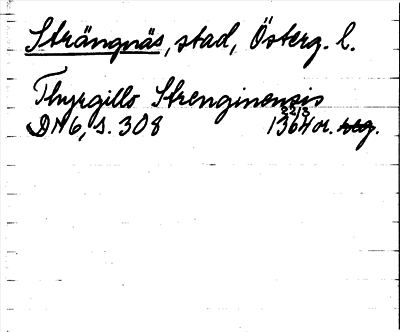 Strängnäs, stad, Österg. l.
Thyrgillo Strenginensis
DN 6, s. 308 22/3 1364 or. reg.